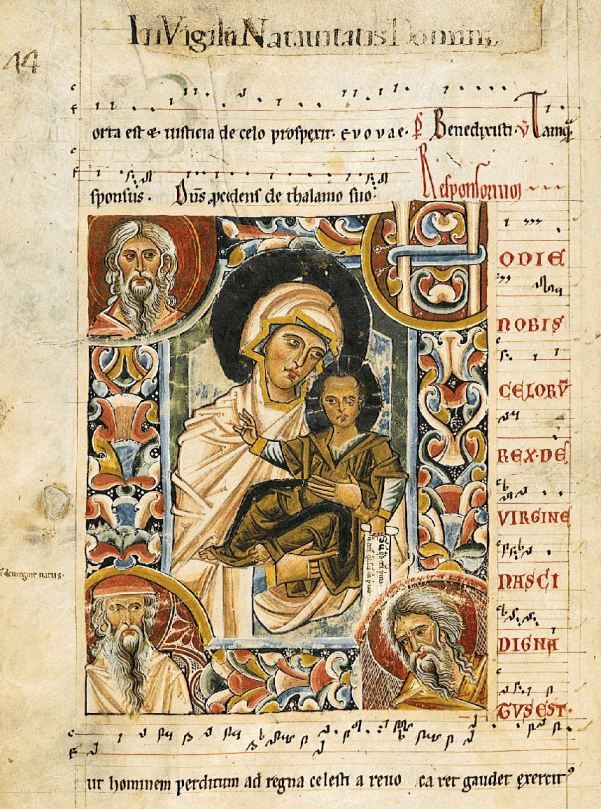 In Vigilia Natiuitatis Domini,
44
orta est & iusticia de celo prosperit. e v o v a e. Benedixisti. Tamq̄
sponsus. Dn̄s pcedens de thalamo suo.
Responsorium
ODIE
NOBIS
CELORV̄
REX·DE
VIRGINE
NASCI
DIGNA
TVS EST·
de uirgine natus·
ut hominem perditum ad regna celesti a reuo ca ret gaudet exercit᷒